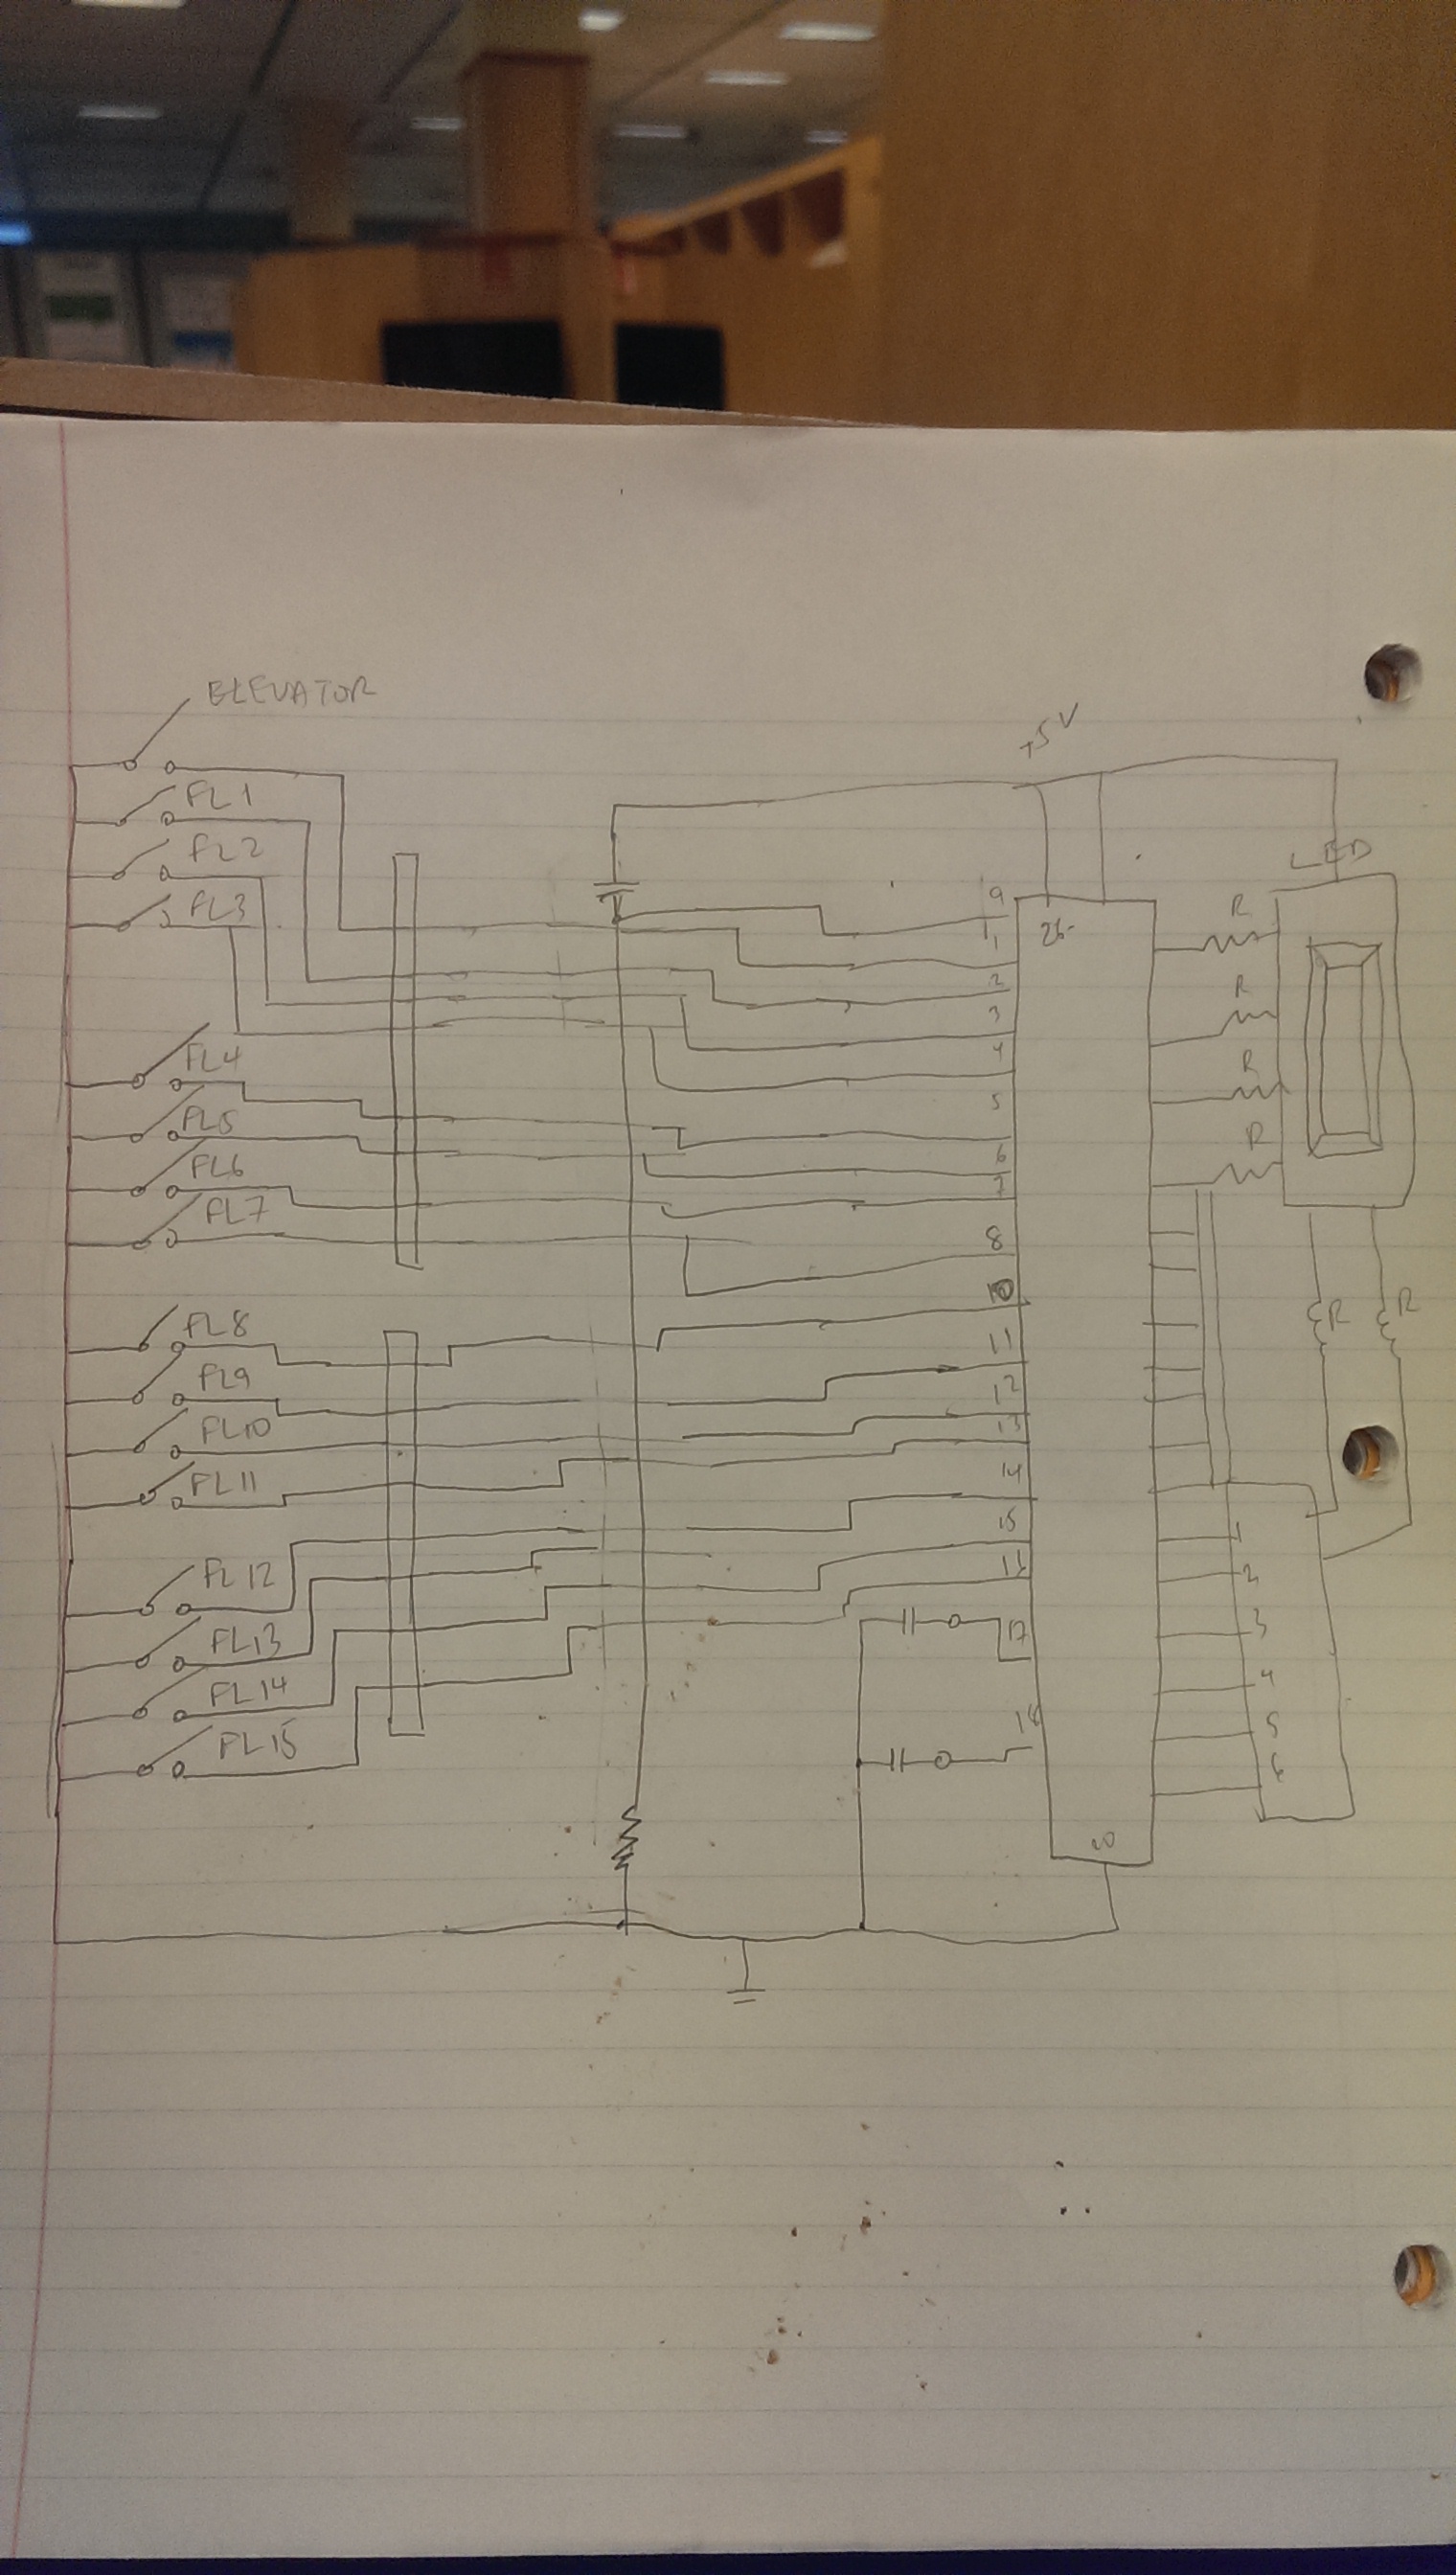 ELEVATOR
FL1
FL2
FL3
FL4
FL5
FL6
FL7
FL8
FL9
FL10
FL11
FL12
FL13
FL14
FL15
+5V
9
1
2
3
4
5
6
7
8
10
11
12
13
14
15
17
18
20
LED
R
R
R
R
R
R
1
2
3
4
5
6